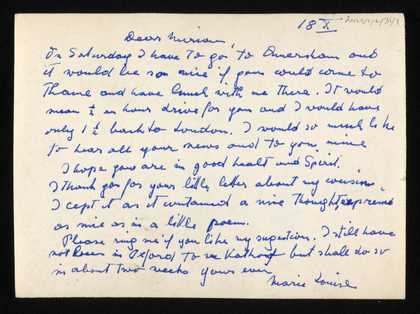 18 X
Dear Miriam,
On Saturday I have to go to Amersham and
it would be so nice if you could come to
Thame and have lunch with me there. It would
mean ½ an hour drive for you and I would have
only 1 ½ back to London. I would so much like
to hear all your news and to you, mine
I hope you are in good health and Spirit.
I thank you for your little letter about my cousin,
I kept it as it contained a nice thought, expressed
as nice as in a little poem.
Please ring me if you like my sugestion. I still have
not been in Oxford to see but shall do so
in about two weeks yours ever
Marie Louise